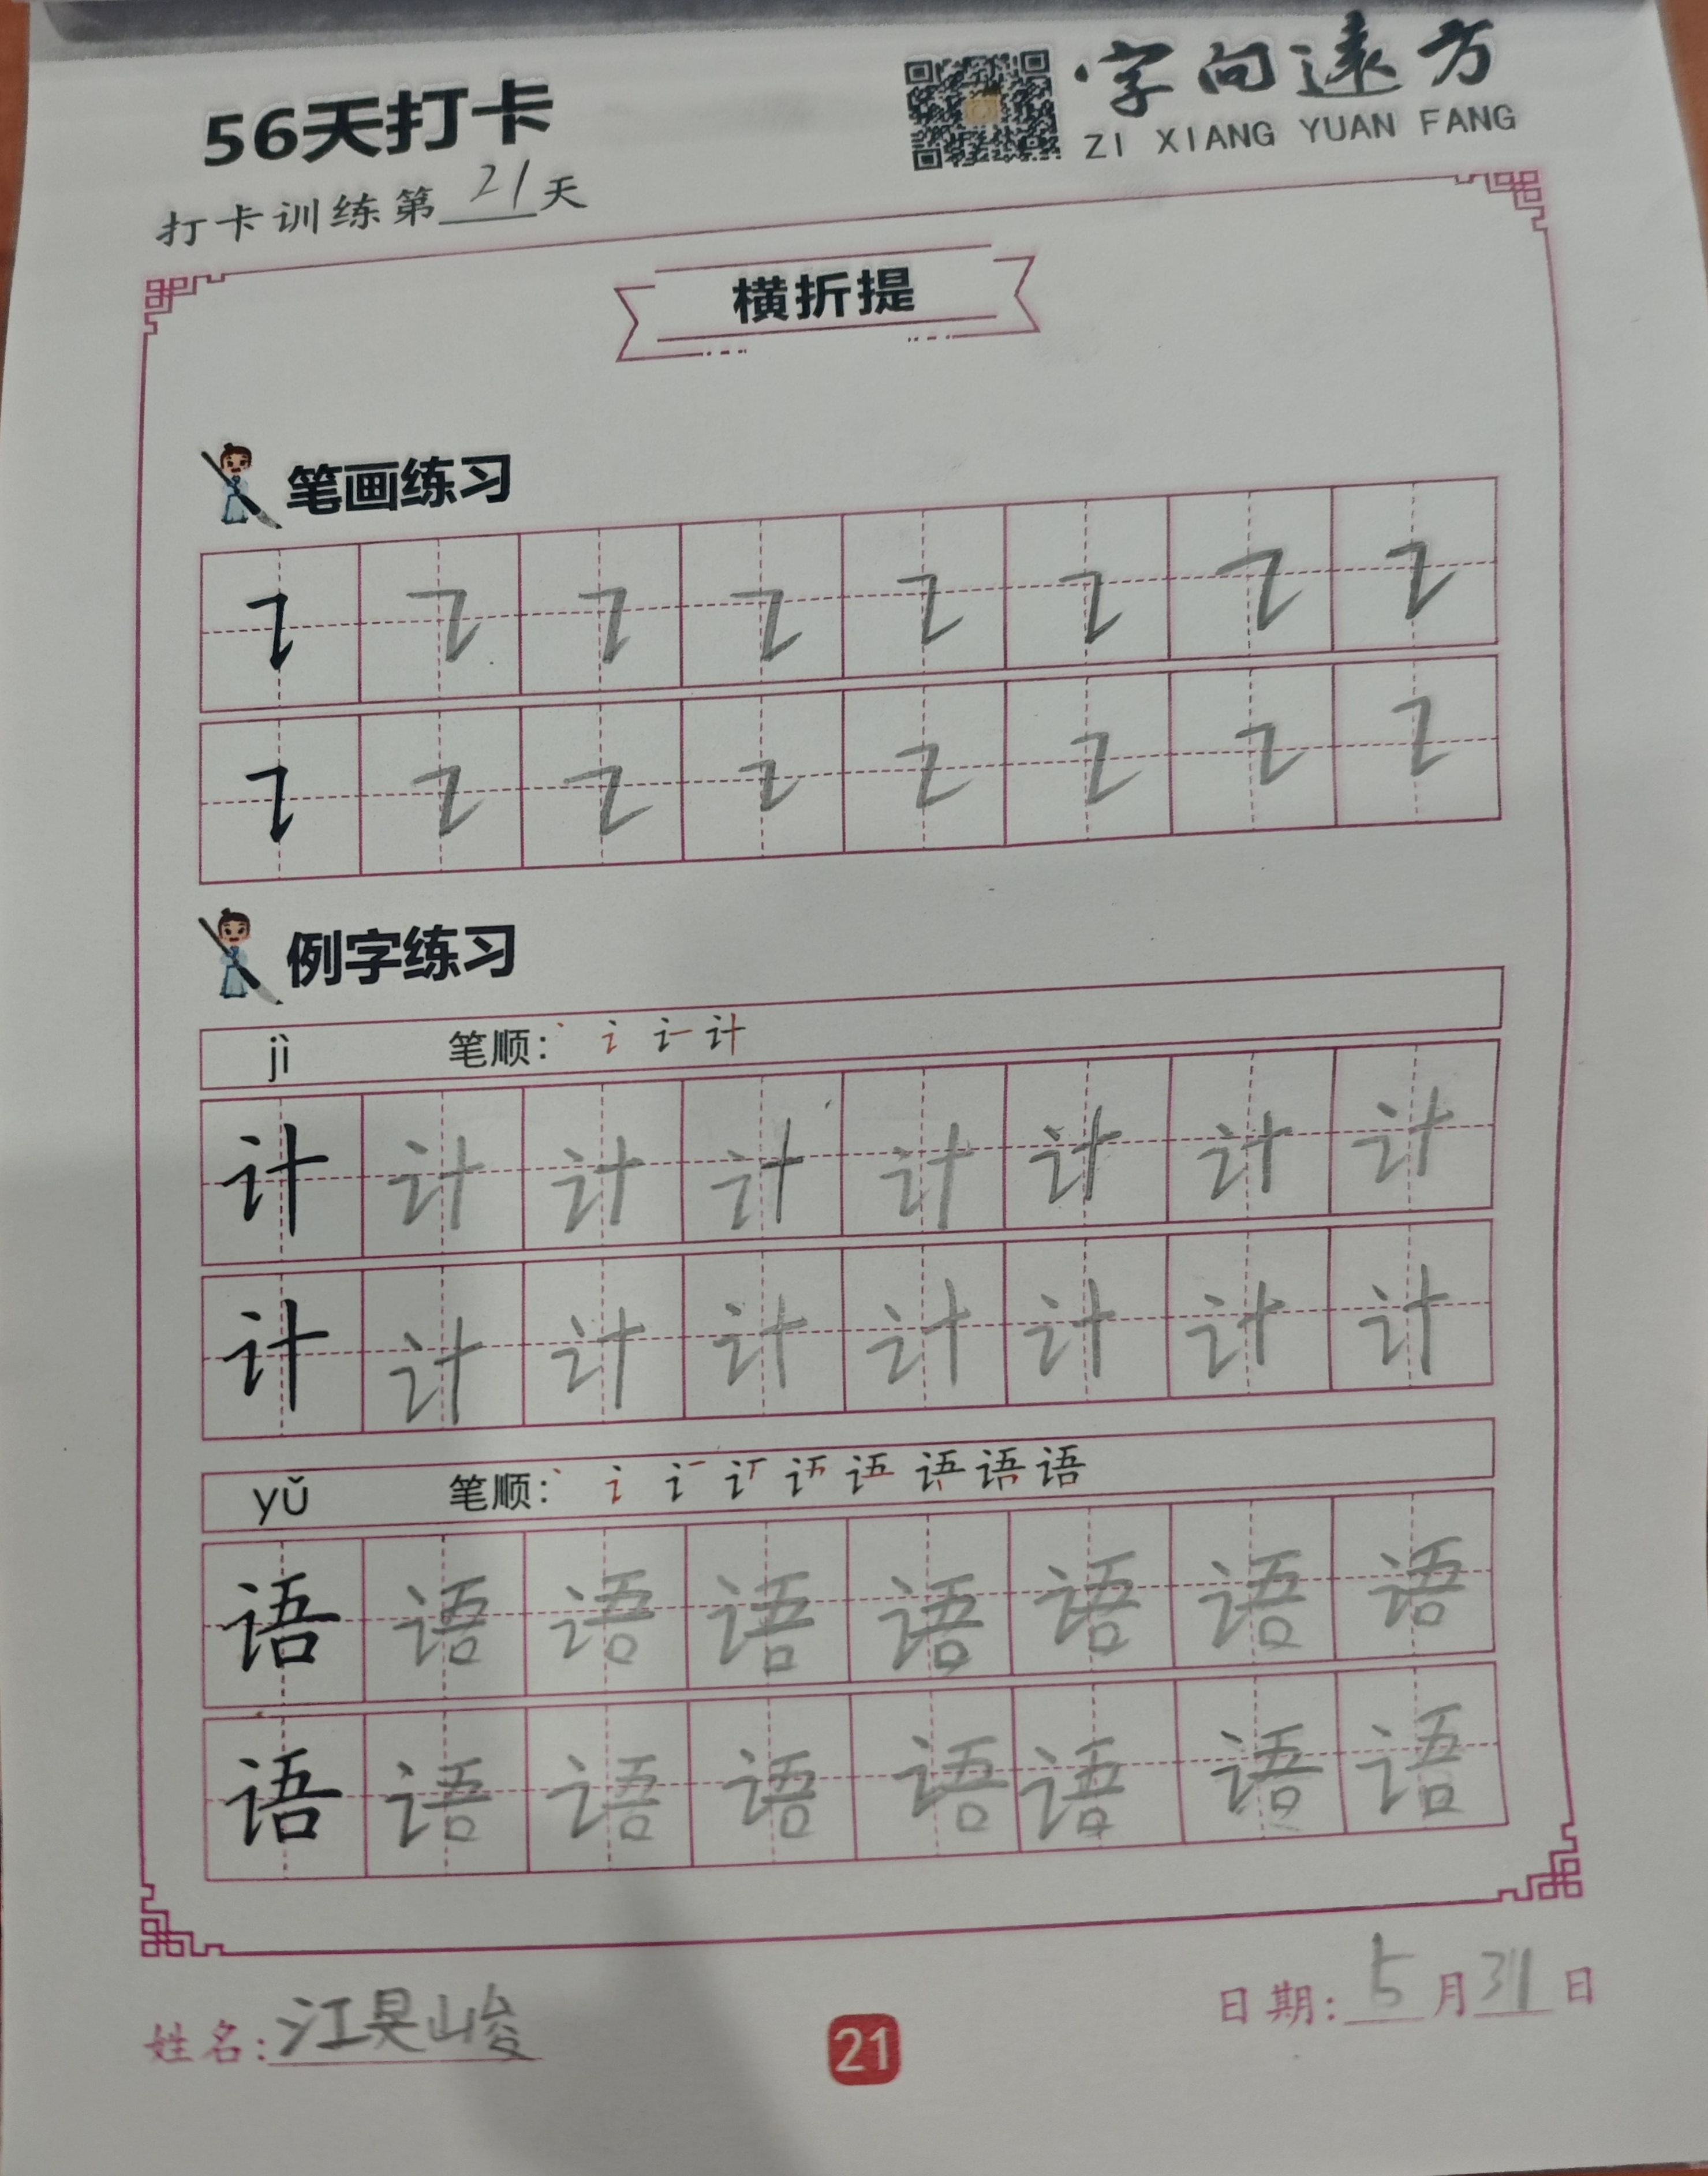 56天打卡
字向远方
ZI XIANG YUAN FANG
打卡训练第21天
横折提
笔画练习
㇊ ㇊ ㇊ ㇊ ㇊ ㇊ ㇊ ㇊
㇊ ㇊ ㇊ ㇊ ㇊ ㇊ ㇊ ㇊
例字练习
jì 笔顺:
计 计 计 计 计 计 计 计
计 计 计 计 计 计 计 计
yǔ 笔顺: 语
语 语 语 语 语 语 语 语
语 语 语 语 语 语 语 语
姓名: 江昊峻
21
日期: 5月31日